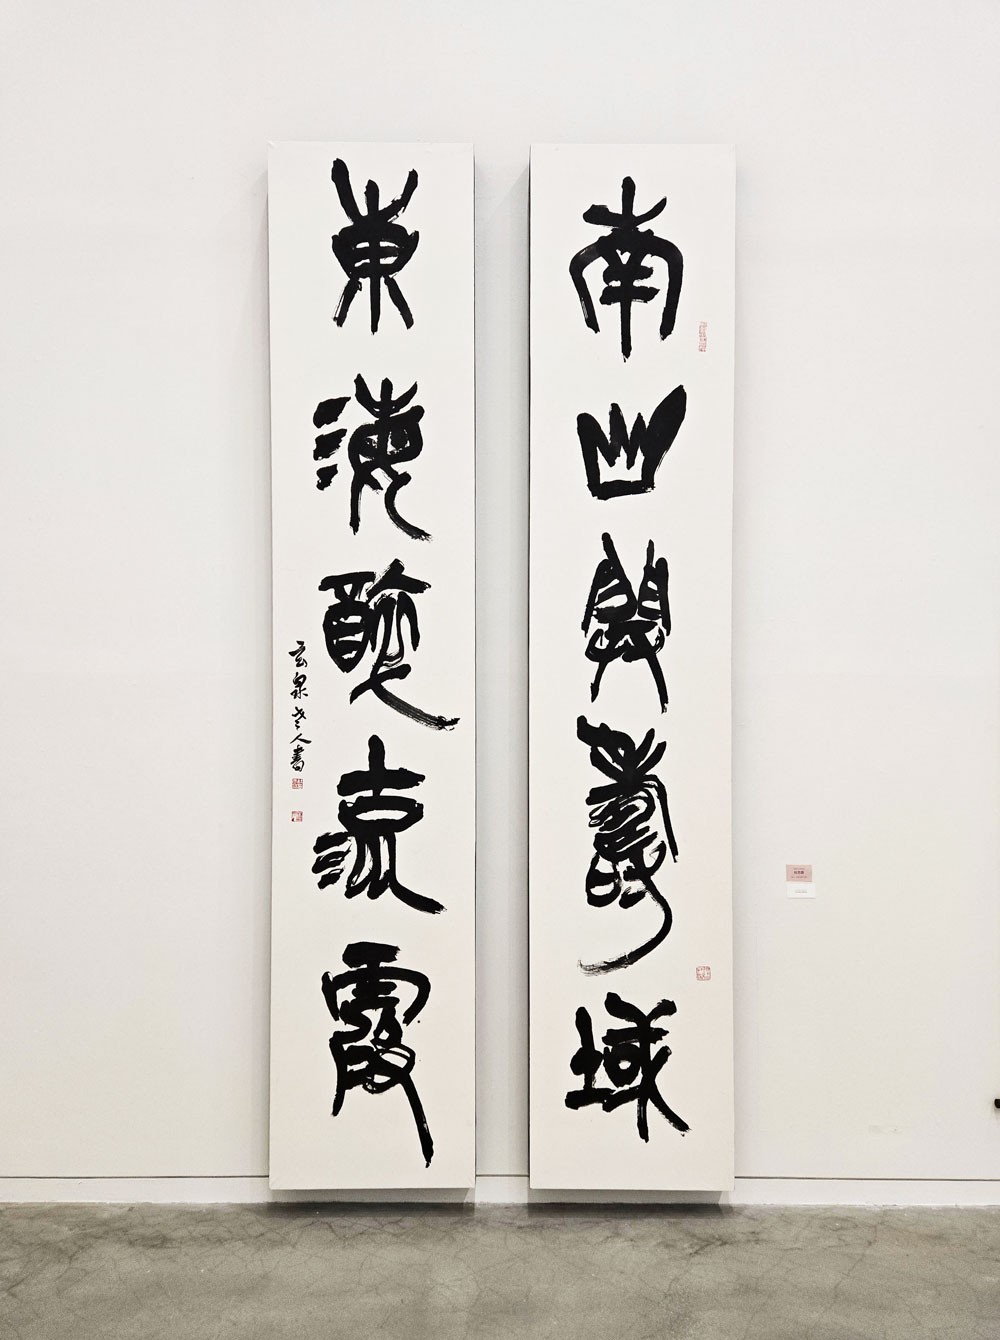 南山開壽域
東海酌流霞
玄泉老人書